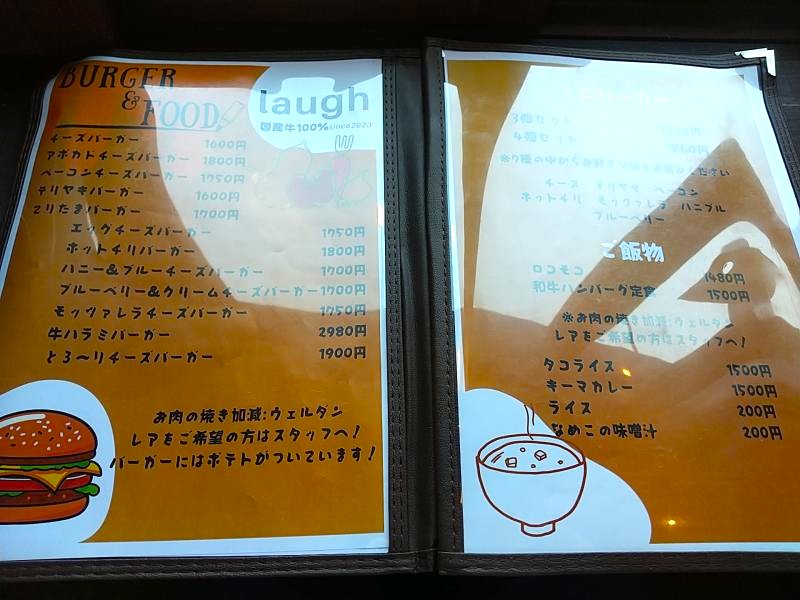 BURGER
& FOOD
laugh
国産牛100% since2023
チーズバーガー 1600円
アボカドチーズバーガー 1800円
ベーコンチーズバーガー 1750円
テリヤキバーガー 1600円
てりたまバーガー 1700円
エッグチーズバーガー 1750円
ホットチリバーガー 1800円
ハニー&ブルーチーズバーガー 1700円
ブルーベリー&クリームチーズバーガー 1700円
モッツァレラチーズバーガー 1750円
牛ハラミバーガー 2980円
とろ〜りチーズバーガー 1900円
お肉の焼き加減:ウェルダン
レアをご希望の方はスタッフへ!
バーガーにはポテトがついています!
バーガー
3個セット
4個セット 1860円
※7種の中からお好き
ください
チーズ テリヤキ ベーコン
ホットチリ モッツァレラ ハニブル
ブルーベリー
ご飯物
ロコモコ 1480円
和牛ハンバーグ定食 1500円
※お肉の焼き加減:ウェルダン
レアをご希望の方はスタッフへ!
タコライス 1500円
キーマカレー 1500円
ライス 200円
なめこの味噌汁 200円